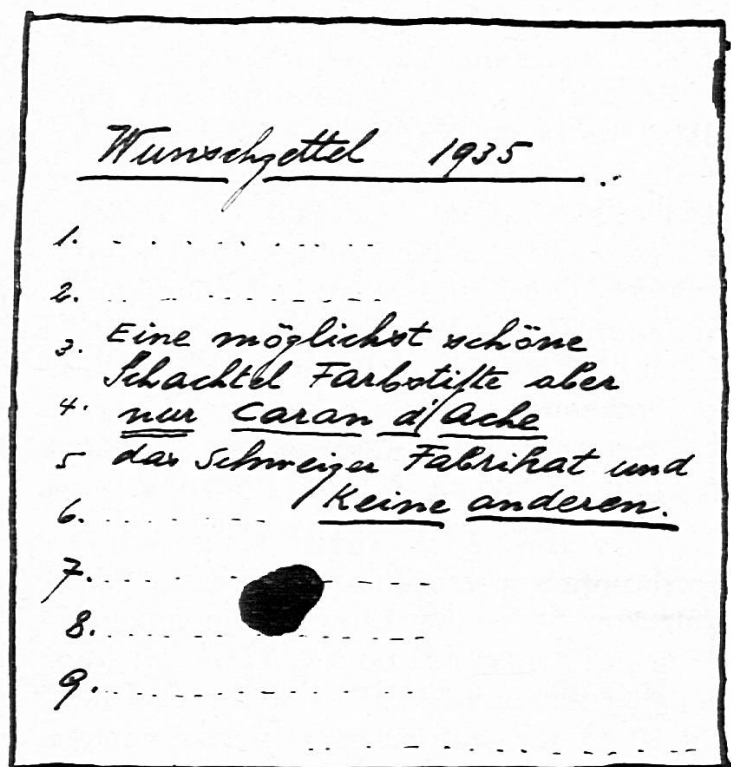 Wunschzettel 1935
1. . . . . . . . . . . .
2. . . . . . . . . . . .
3. Eine möglichst schöne
Schachtel Farbstifte aber
4. nur Caran d'Ache
5 das Schweizer Fabrikat und
6. . . . . . . . Keine anderen.
7. . . . . . . . . . . .
8. . . . . . . . . . . .
9. . . . . . . . . . . .